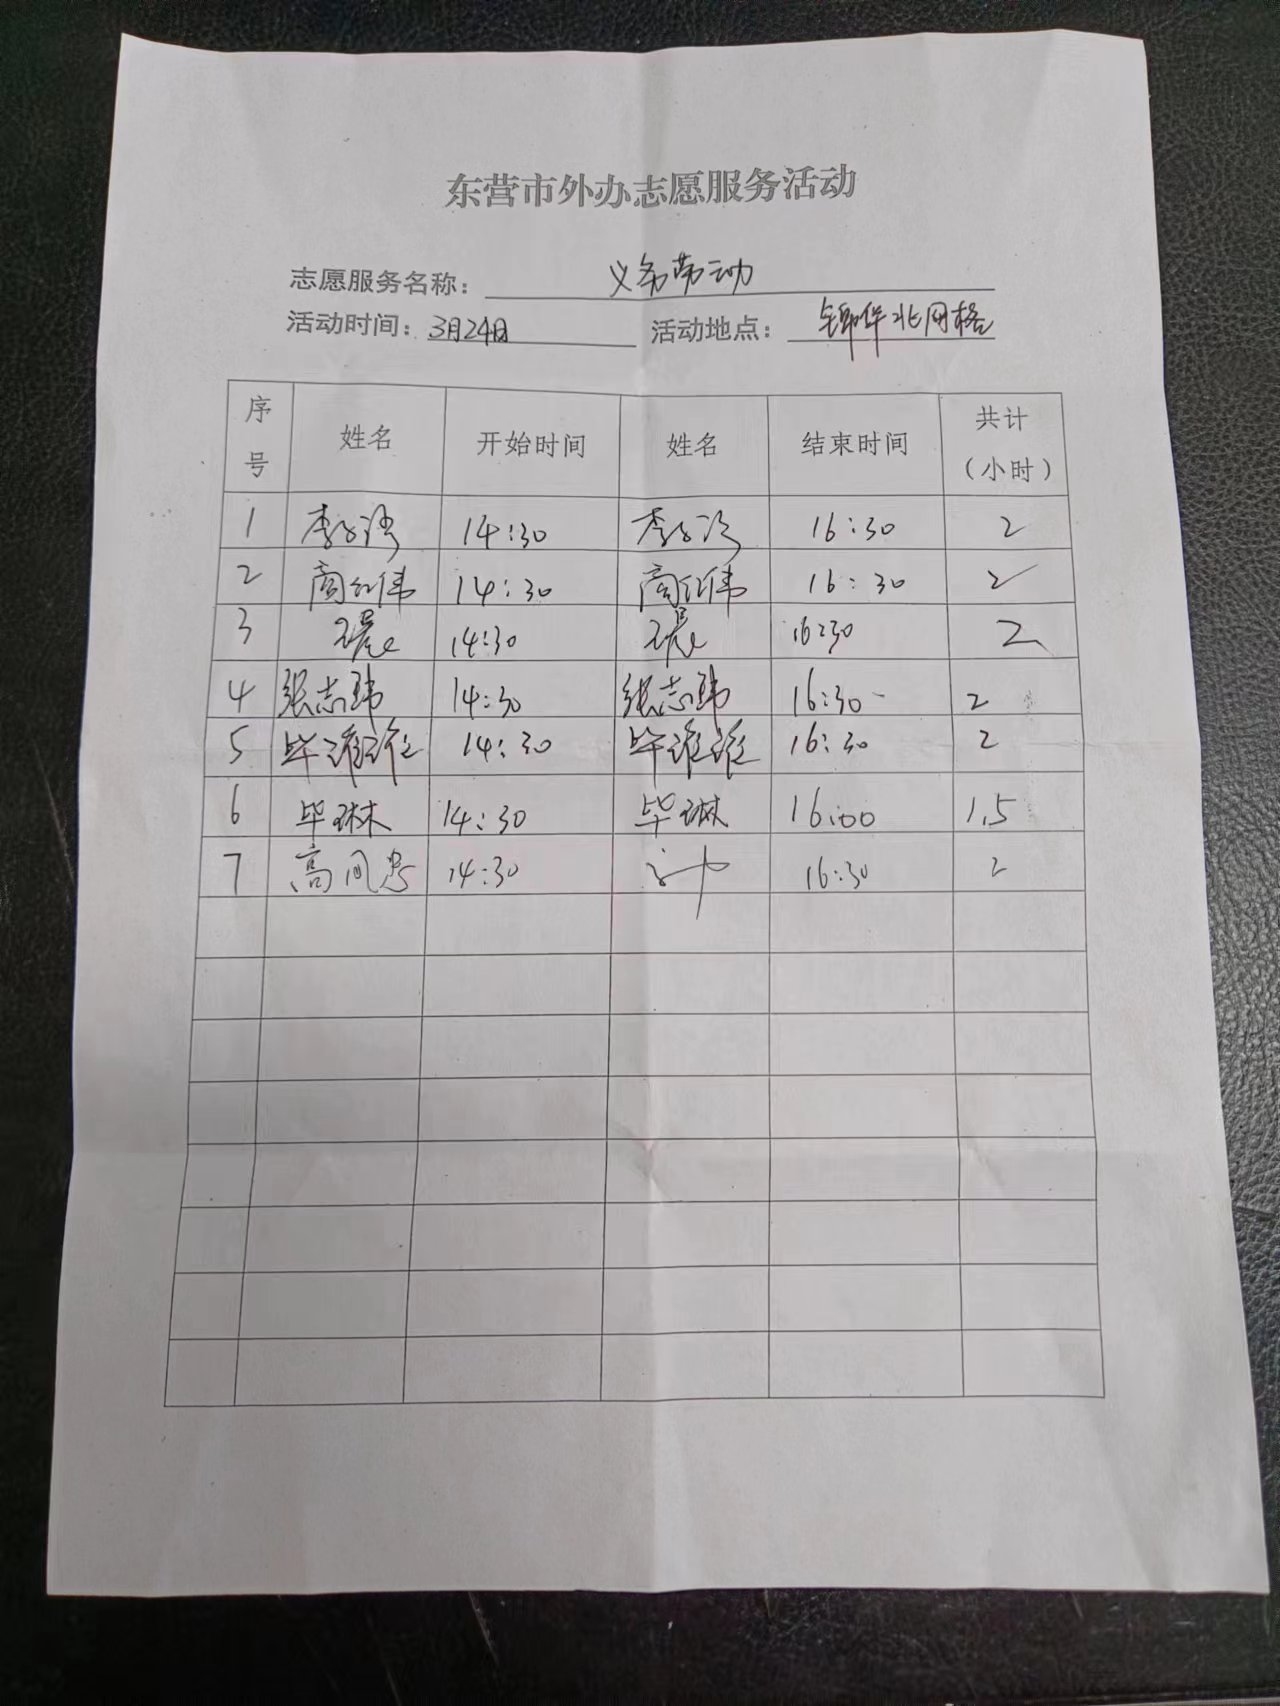 东营市外办志愿服务活动
志愿服务名称： 义务劳动
活动时间：3月24日 活动地点： 锦华北网格
序号 姓名 开始时间 姓名 结束时间 共计（小时）
1 14:30 16:30 2
2 商红伟 14:30 商红伟 16:30 2
3 14:30 16:30 2
4 张志玮 14:30 张志玮 16:30 2
5 毕 14:30 毕 16:30 2
6 毕琳 14:30 毕琳 16:00 1.5
7 高 14:30 16:30 2